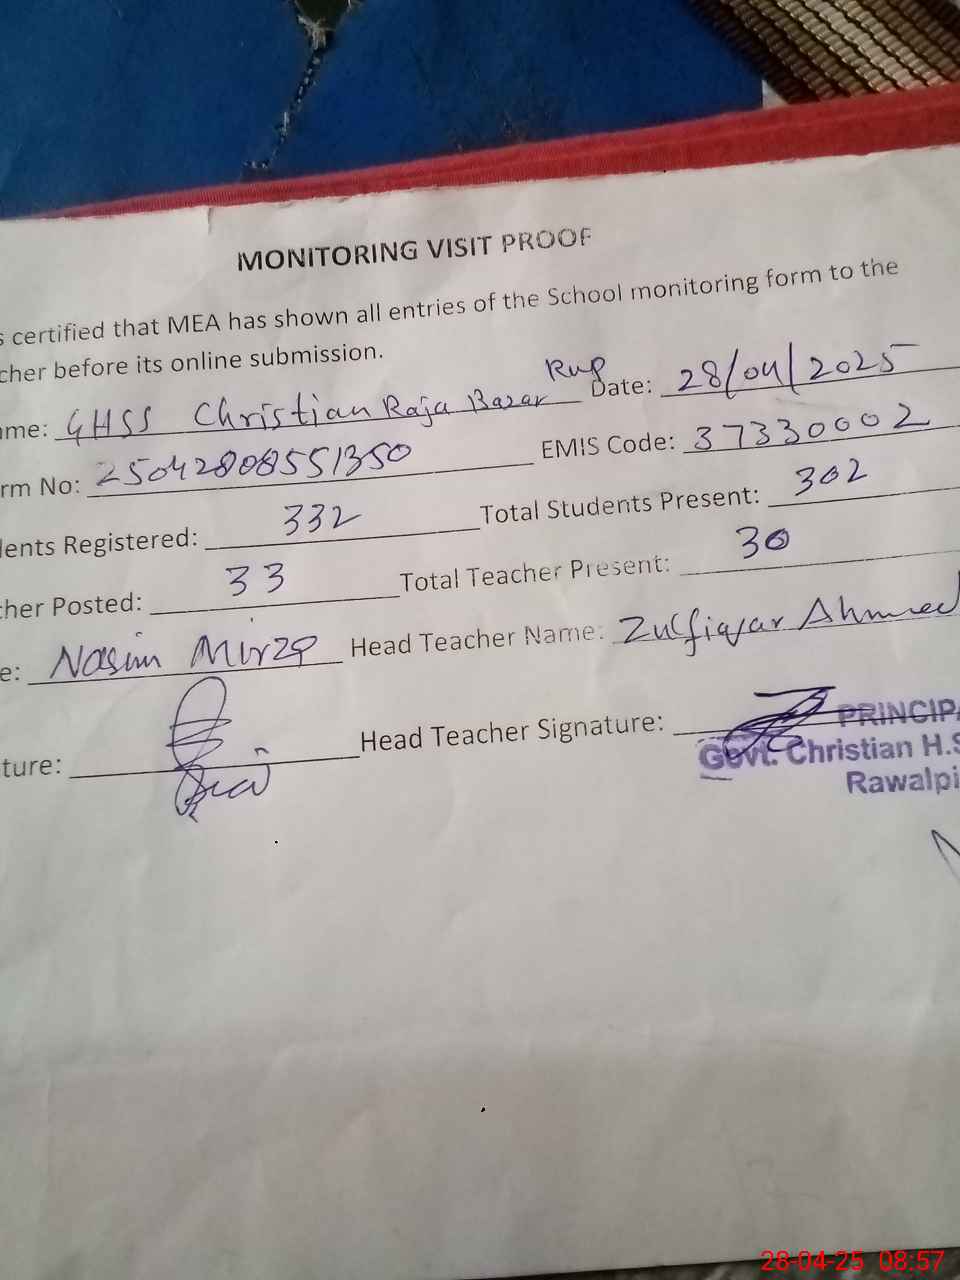 MONITORING VISIT PROOF
s certified that MEA has shown all entries of the School monitoring form to the
cher before its online submission.
ame: GHSS Christian Raja Bazar Rwp Date: 28/04/2025
rm No: 25042808551350 EMIS Code: 37330002
dents Registered: 332 Total Students Present: 302
cher Posted: 33 Total Teacher Present: 30
e: Nasim Mirza Head Teacher Name: Zulfiqar Ahmed
ture: Head Teacher Signature:
PRINCIPA
Govt. Christian H.S
Rawalpi
28-04-25 08:57